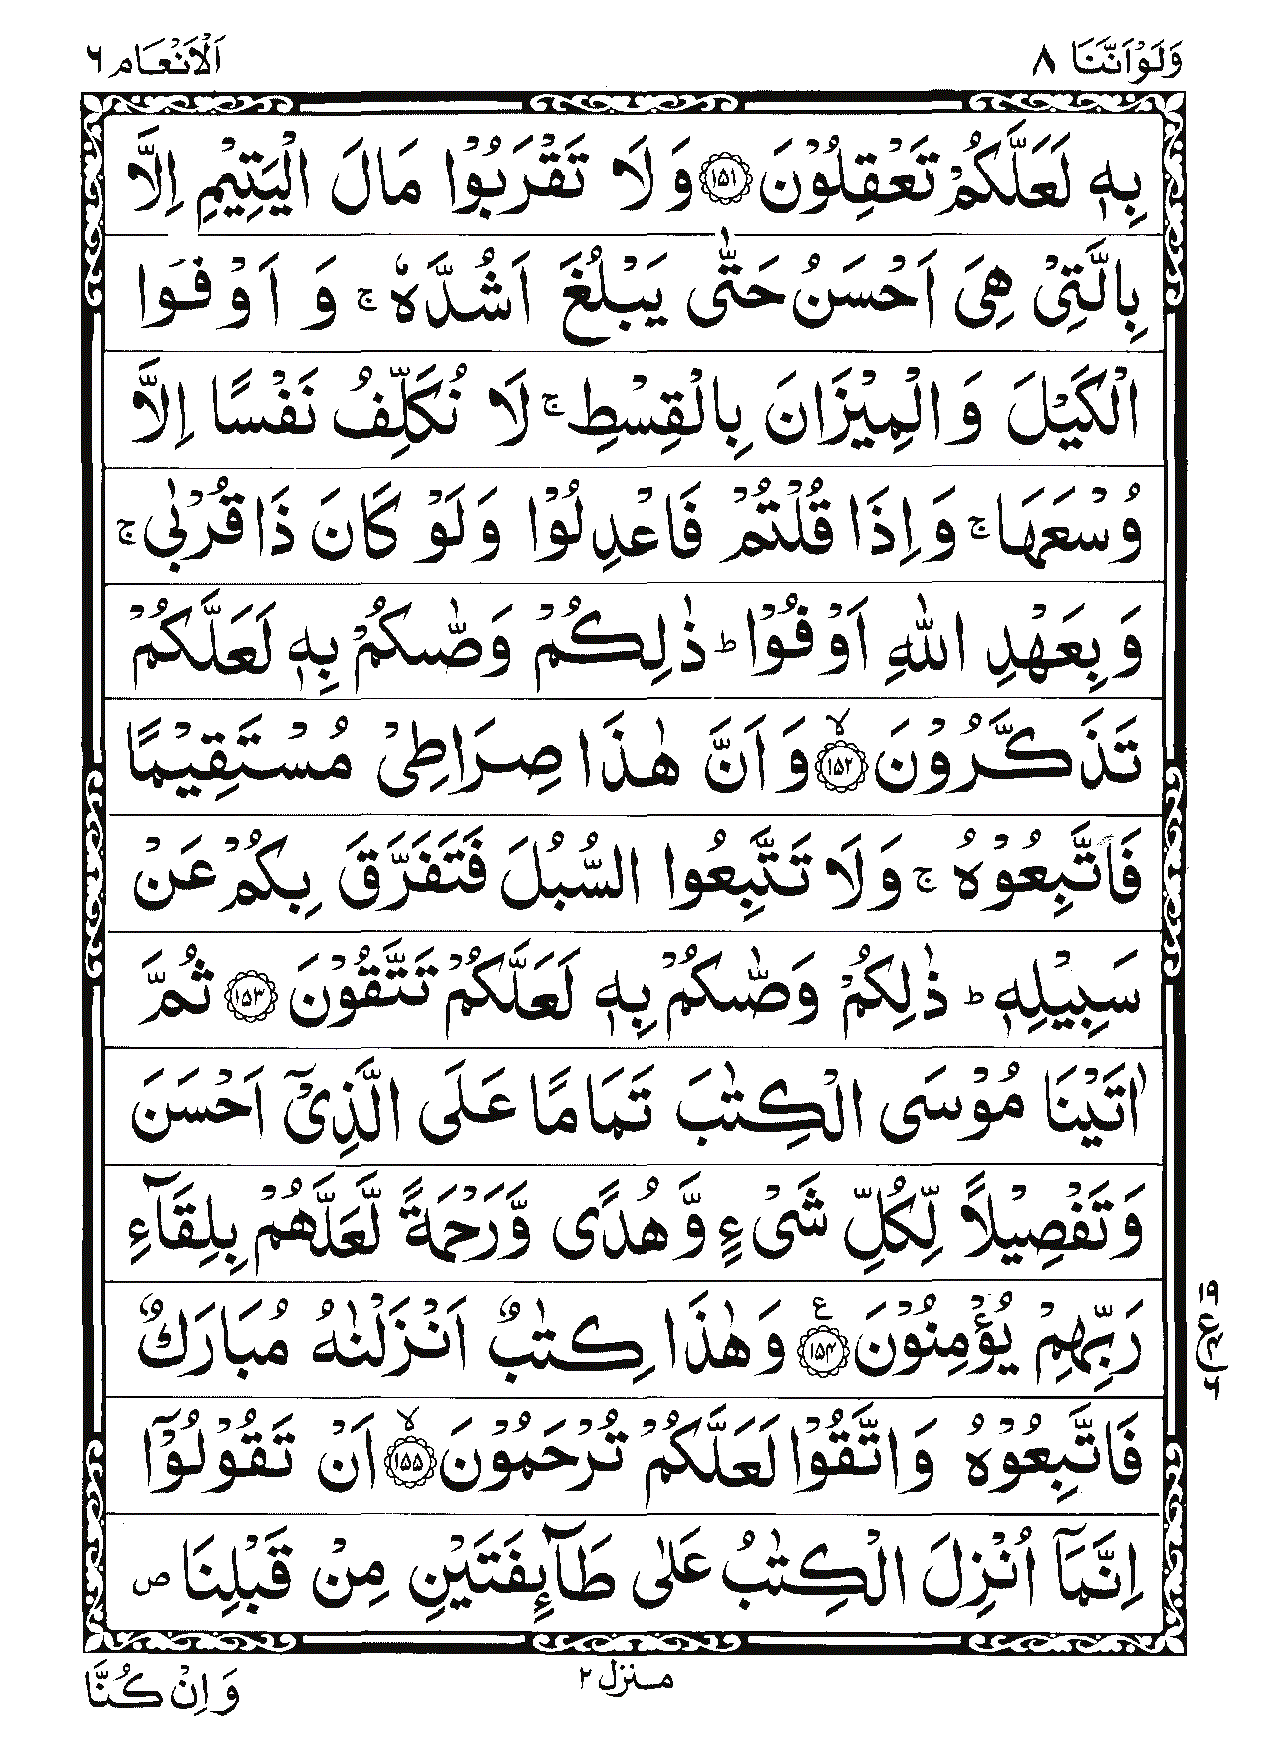 وَلَوْاَنَّنَا ۸
اَلْاَنْعَام ٦
بِهٖ لَعَلَّكُمْ تَعْقِلُوْنَ ﴿۱۵۱﴾ وَ لَا تَقْرَبُوْا مَالَ الْيَتِيْمِ اِلَّا
بِالَّتِيْ هِيَ اَحْسَنُ حَتّٰى يَبْلُغَ اَشُدَّهٗ ۚ وَ اَوْفُوا
الْكَيْلَ وَ الْمِيْزَانَ بِالْقِسْطِ ۚ لَا نُكَلِّفُ نَفْسًا اِلَّا
وُسْعَهَا ۚ وَ اِذَا قُلْتُمْ فَاعْدِلُوْا وَلَوْ كَانَ ذَا قُرْبٰى ۚ
وَ بِعَهْدِ اللّٰهِ اَوْفُوْا ؕ ذٰلِكُمْ وَصّٰىكُمْ بِهٖ لَعَلَّكُمْ
تَذَكَّرُوْنَ ﴿۱۵۲﴾ ۙ وَ اَنَّ هٰذَا صِرَاطِيْ مُسْتَقِيْمًا
فَاتَّبِعُوْهُ ۚ وَ لَا تَتَّبِعُوا السُّبُلَ فَتَفَرَّقَ بِكُمْ عَنْ
سَبِيْلِهٖ ؕ ذٰلِكُمْ وَصّٰىكُمْ بِهٖ لَعَلَّكُمْ تَتَّقُوْنَ ﴿۱۵۳﴾ ثُمَّ
اٰتَيْنَا مُوْسَى الْكِتٰبَ تَمَامًا عَلَى الَّذِيْۤ اَحْسَنَ
وَتَفْصِيْلًا لِّكُلِّ شَيْءٍ وَّ هُدًى وَّرَحْمَةً لَّعَلَّهُمْ بِلِقَآءِ
رَبِّهِمْ يُؤْمِنُوْنَ ﴿۱۵۴﴾ ع وَ هٰذَا كِتٰبٌ اَنْزَلْنٰهُ مُبَارَكٌ
فَاتَّبِعُوْهُ وَ اتَّقُوْا لَعَلَّكُمْ تُرْحَمُوْنَ ﴿۱۵۵﴾ ۙ اَنْ تَقُوْلُوْۤا
اِنَّمَاۤ اُنْزِلَ الْكِتٰبُ عَلٰى طَآئِفَتَيْنِ مِنْ قَبْلِنَا ص
۱۹
ع ۴
٦
منزل ۲
وَ اِنْ كُنَّا